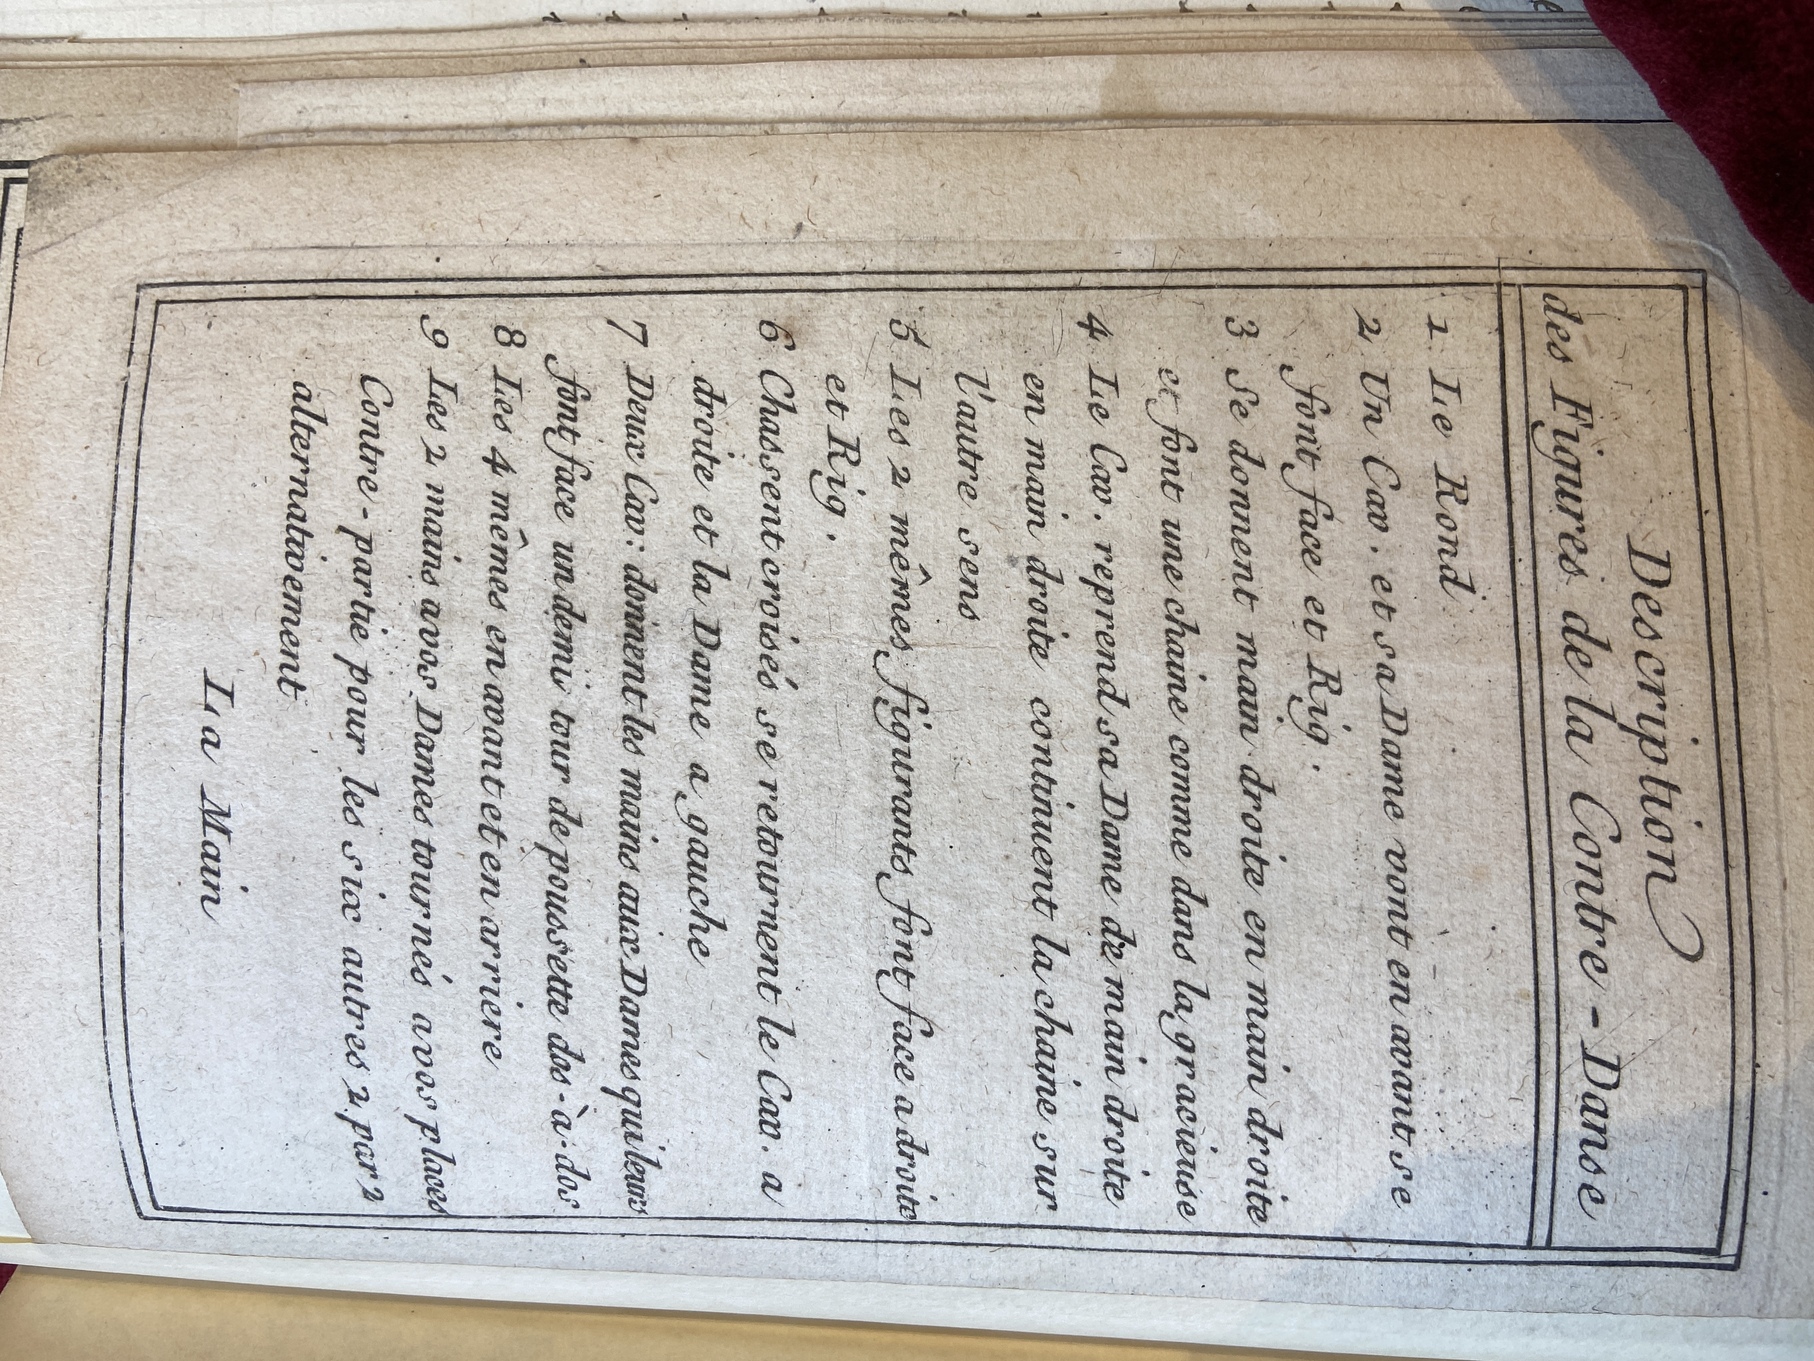 Description
des Figures de la Contre-Danse
1 Le Rond
2 Un Cav. et sa Dame vont en avant se
font face et Rig.
3 Se donnent main droite en main droite
et font une chaine comme dans la gracieuse
4 Le Cav. reprend sa Dame de main droite
en main droite continuent la chaine sur
l'autre sens
5 Les 2 mêmes figurants font face a droite
et Rig.
6 Chassent croisés se retournent le Cav. a
droite et la Dame a gauche
7 Deux Cav: donnent les mains aux Dames qui leurs
font face un demi tour de poussette dos-à-dos
8 Les 4 mêmes en avant et en arriere
9 Les 2 mains a vos Dames tournés a vos places
Contre-partie pour les six autres 2 par 2
alternativement
La Main